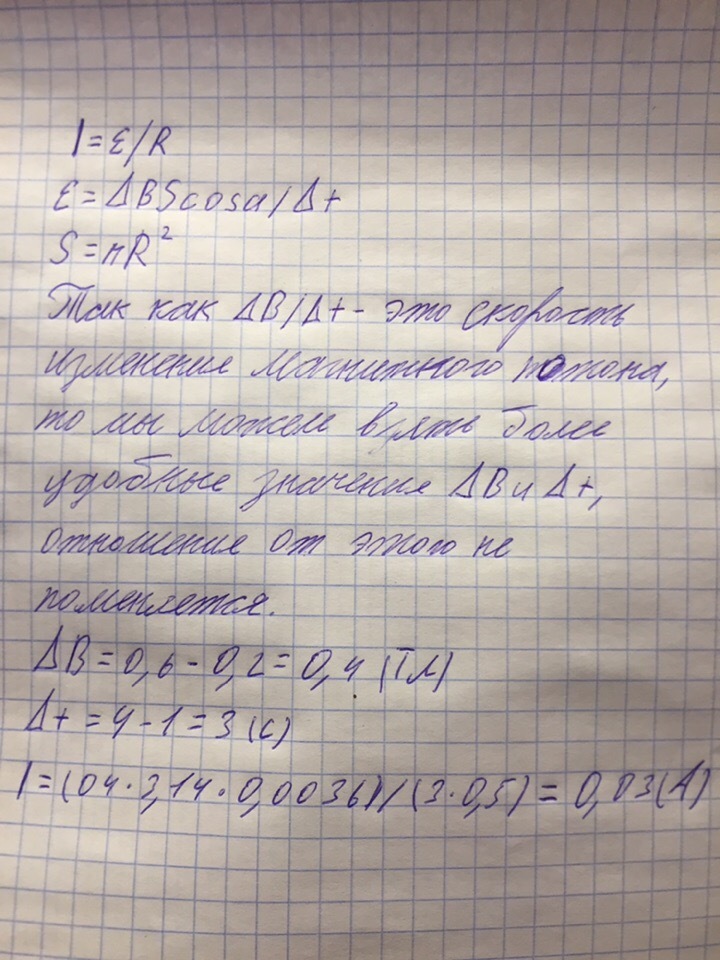 I = ε/R
ε = ΔBScosα/Δt
S = πR²
Так как ΔB/Δt - это скорость
изменения магнитного потока,
то мы можем взять более
удобные значения ΔB и Δt,
отношение от этого не
поменяется.
ΔB = 0,6 - 0,2 = 0,4 (Тл)
Δt = 4 - 1 = 3 (с)
I = (04 · 3,14 · 0,0036)/(3 · 0,5) = 0,03(А)